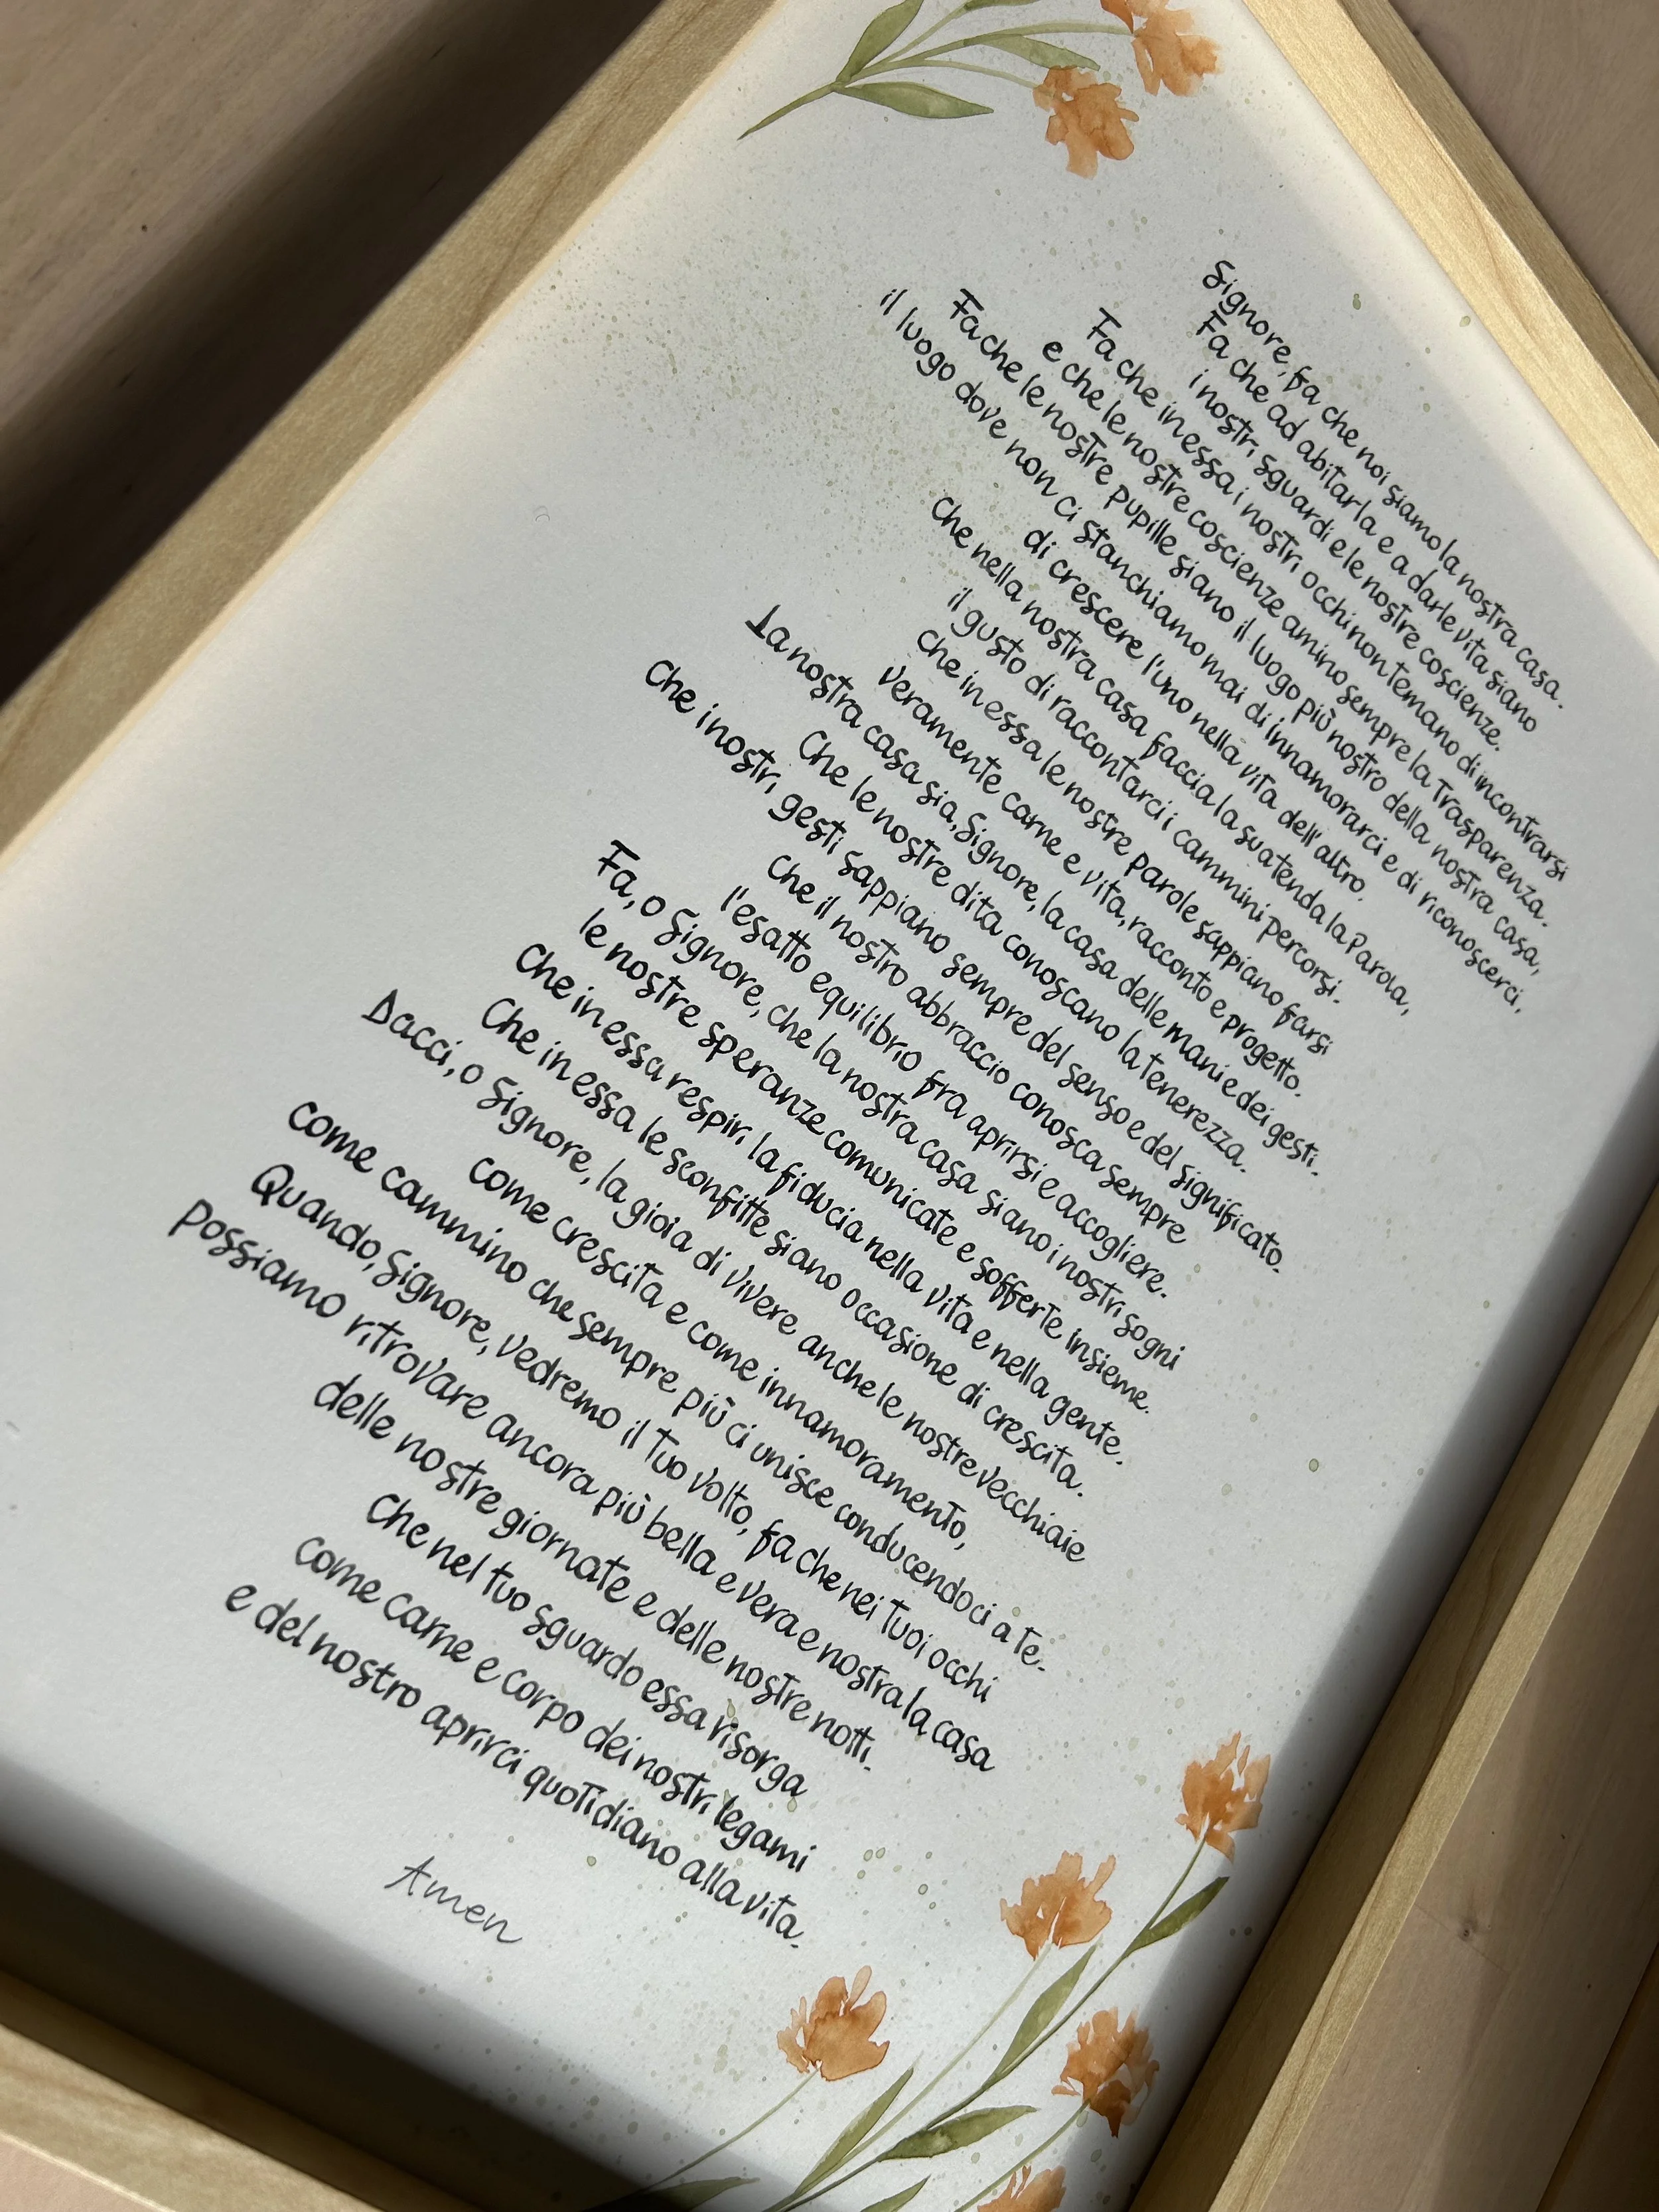 Signore, fa che noi siamo la nostra casa.
Fa che ad abitarla e a darle vita siano
i nostri sguardi e le nostre coscienze.
Fa che in essa i nostri occhi non temano di incontrarsi
e che le nostre coscienze amino sempre la Trasparenza.
Fa che le nostre pupille siano il luogo più nostro della nostra casa,
il luogo dove non ci stanchiamo mai di innamorarci e di riconoscerci,
di crescere l'uno nella vita dell'altro.
che nella nostra casa faccia la sua tenda la Parola,
il gusto di raccontarci i cammini percorsi.
che in essa le nostre parole sappiano farsi
veramente carne e vita, racconto e progetto.
La nostra casa sia, Signore, la casa delle mani e dei gesti.
Che le nostre dita conoscano la tenerezza.
Che i nostri gesti sappiano sempre del senso e del significato.
Che il nostro abbraccio conosca sempre
l'esatto equilibrio fra aprirsi e accogliere.
Fa, o Signore, che la nostra casa siano i nostri sogni
le nostre speranze comunicate e sofferte insieme.
Che in essa respiri la fiducia nella vita e nella gente.
Che in essa le sconfitte siano occasione di crescita.
Dacci, o Signore, la gioia di vivere anche le nostre vecchiaie
come crescita e come innamoramento,
come cammino che sempre più ci unisce conducendoci a te.
Quando, Signore, vedremo il Tuo volto, fa che nei Tuoi occhi
possiamo ritrovare ancora più bella e vera e nostra la casa
delle nostre giornate e delle nostre notti.
Che nel tuo sguardo essa risorga
come carne e corpo dei nostri legami
e del nostro aprirci quotidiano alla vita.
Amen